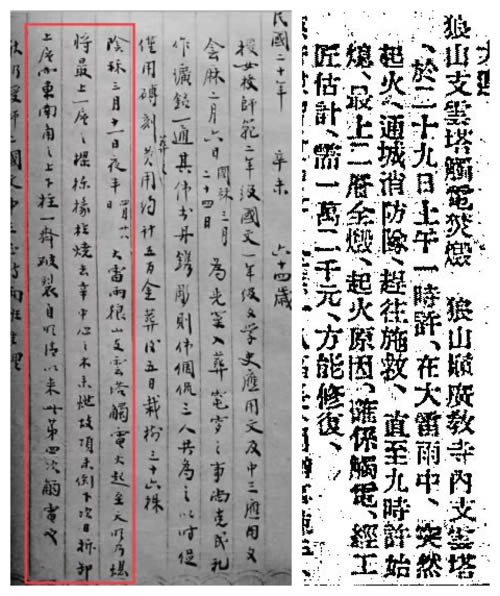 狼山支雲塔觸電焚燬　狼山巔廣教寺內支雲塔
、於二十九日上午一時許、在大雷雨中、突然
起火、通城消防隊、趕往施救、直至九時許始
熄、最上二層全燬、起火原因、確係觸電、經工
匠估計、需一萬二千元、方能修復、
民國二十年　辛未　六十四歲
授女校師範二年級國文一年級文学史應用文及中三應用文
二月六日 國歷三月二十四日 為先室入葬窀穸之事尚克成礼
作壙銘一通其偉書丹鐫彫則偉個侃三人共為之以時促
僅用磚刻葬之費用約計五百金葬後五日栽樹三十六株
陰歷三月十一日夜半 大雷雨狼山支雲塔觸電火起至天明乃熄
將最上一層之椽柱燒去幸中心之木未燬故頂未倒下次日拆卸
上層而東南角之上下柱一齊破裂自明清以來此第四次觸電也